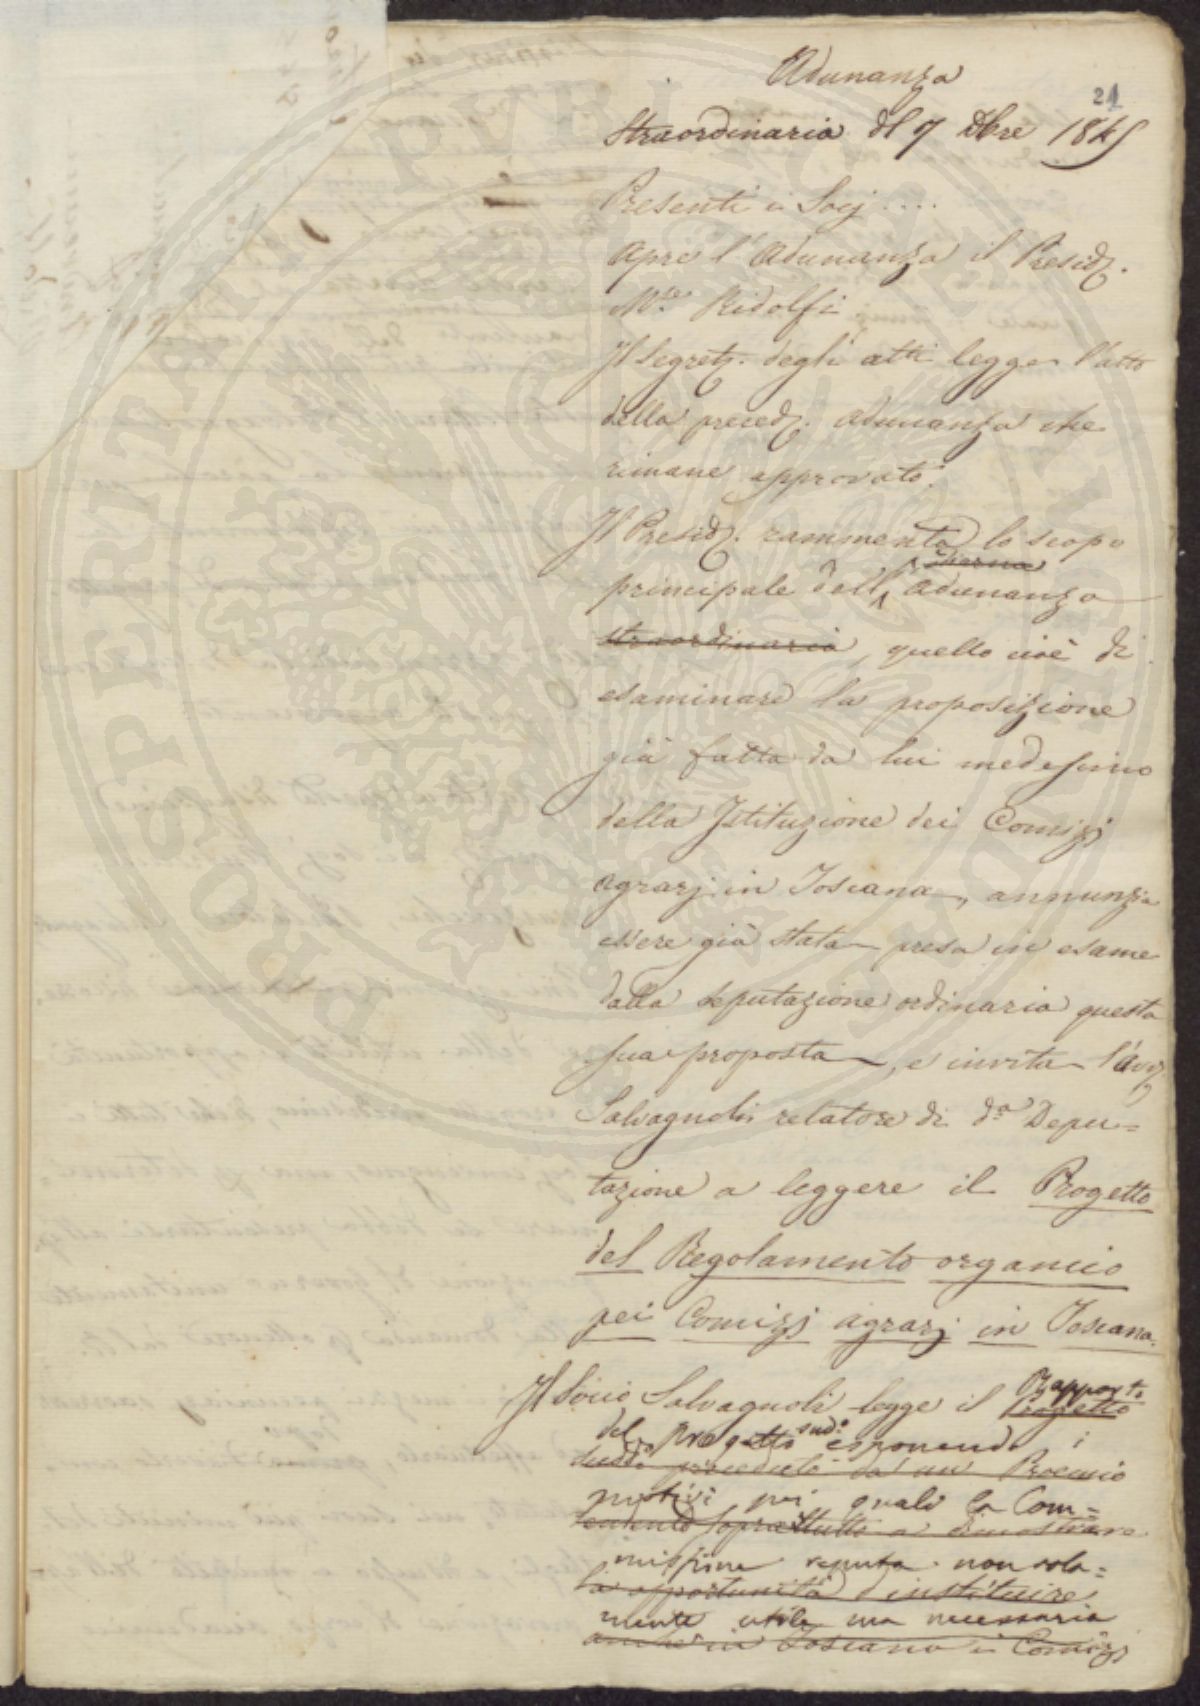 Adunanza
21
Straordinaria del 7 Xbre 1845
Presenti i Socj ....
Apre l'Adunanza il Presid.
M.se Ridolfi
Il Segret. degli atti legge l'atto
della preced. adunanza che
rimane approvato.
Il Presid. rammenta lo scopo
principale dell' odierna adunanza
straordinaria, quello cioè di
esaminare la proposizione
già fatta da lui medesimo
della Istituzione dei Comizj
agrarj in Toscana, annunzia
essere già stata presa in esame
dalla deputazione ordinaria questa
sua proposta, e invita l'Avv.
Salvagnoli relatore di d.a Depu=
tazione a leggere il Progetto
del Regolamento organico
pei Comizj agrarj in Toscana.
Il Socio Salvagnoli legge il Rapporto
Progetto
del Progetto sud.o esponendo i
preceduto da un Proemio
motivi pei quali la Com=
tendente soprattutto a dimostrare
missione reputa non sola=
la opportunità d'instituire
mente utile ma necessaria
anche in Toscana i Comizj